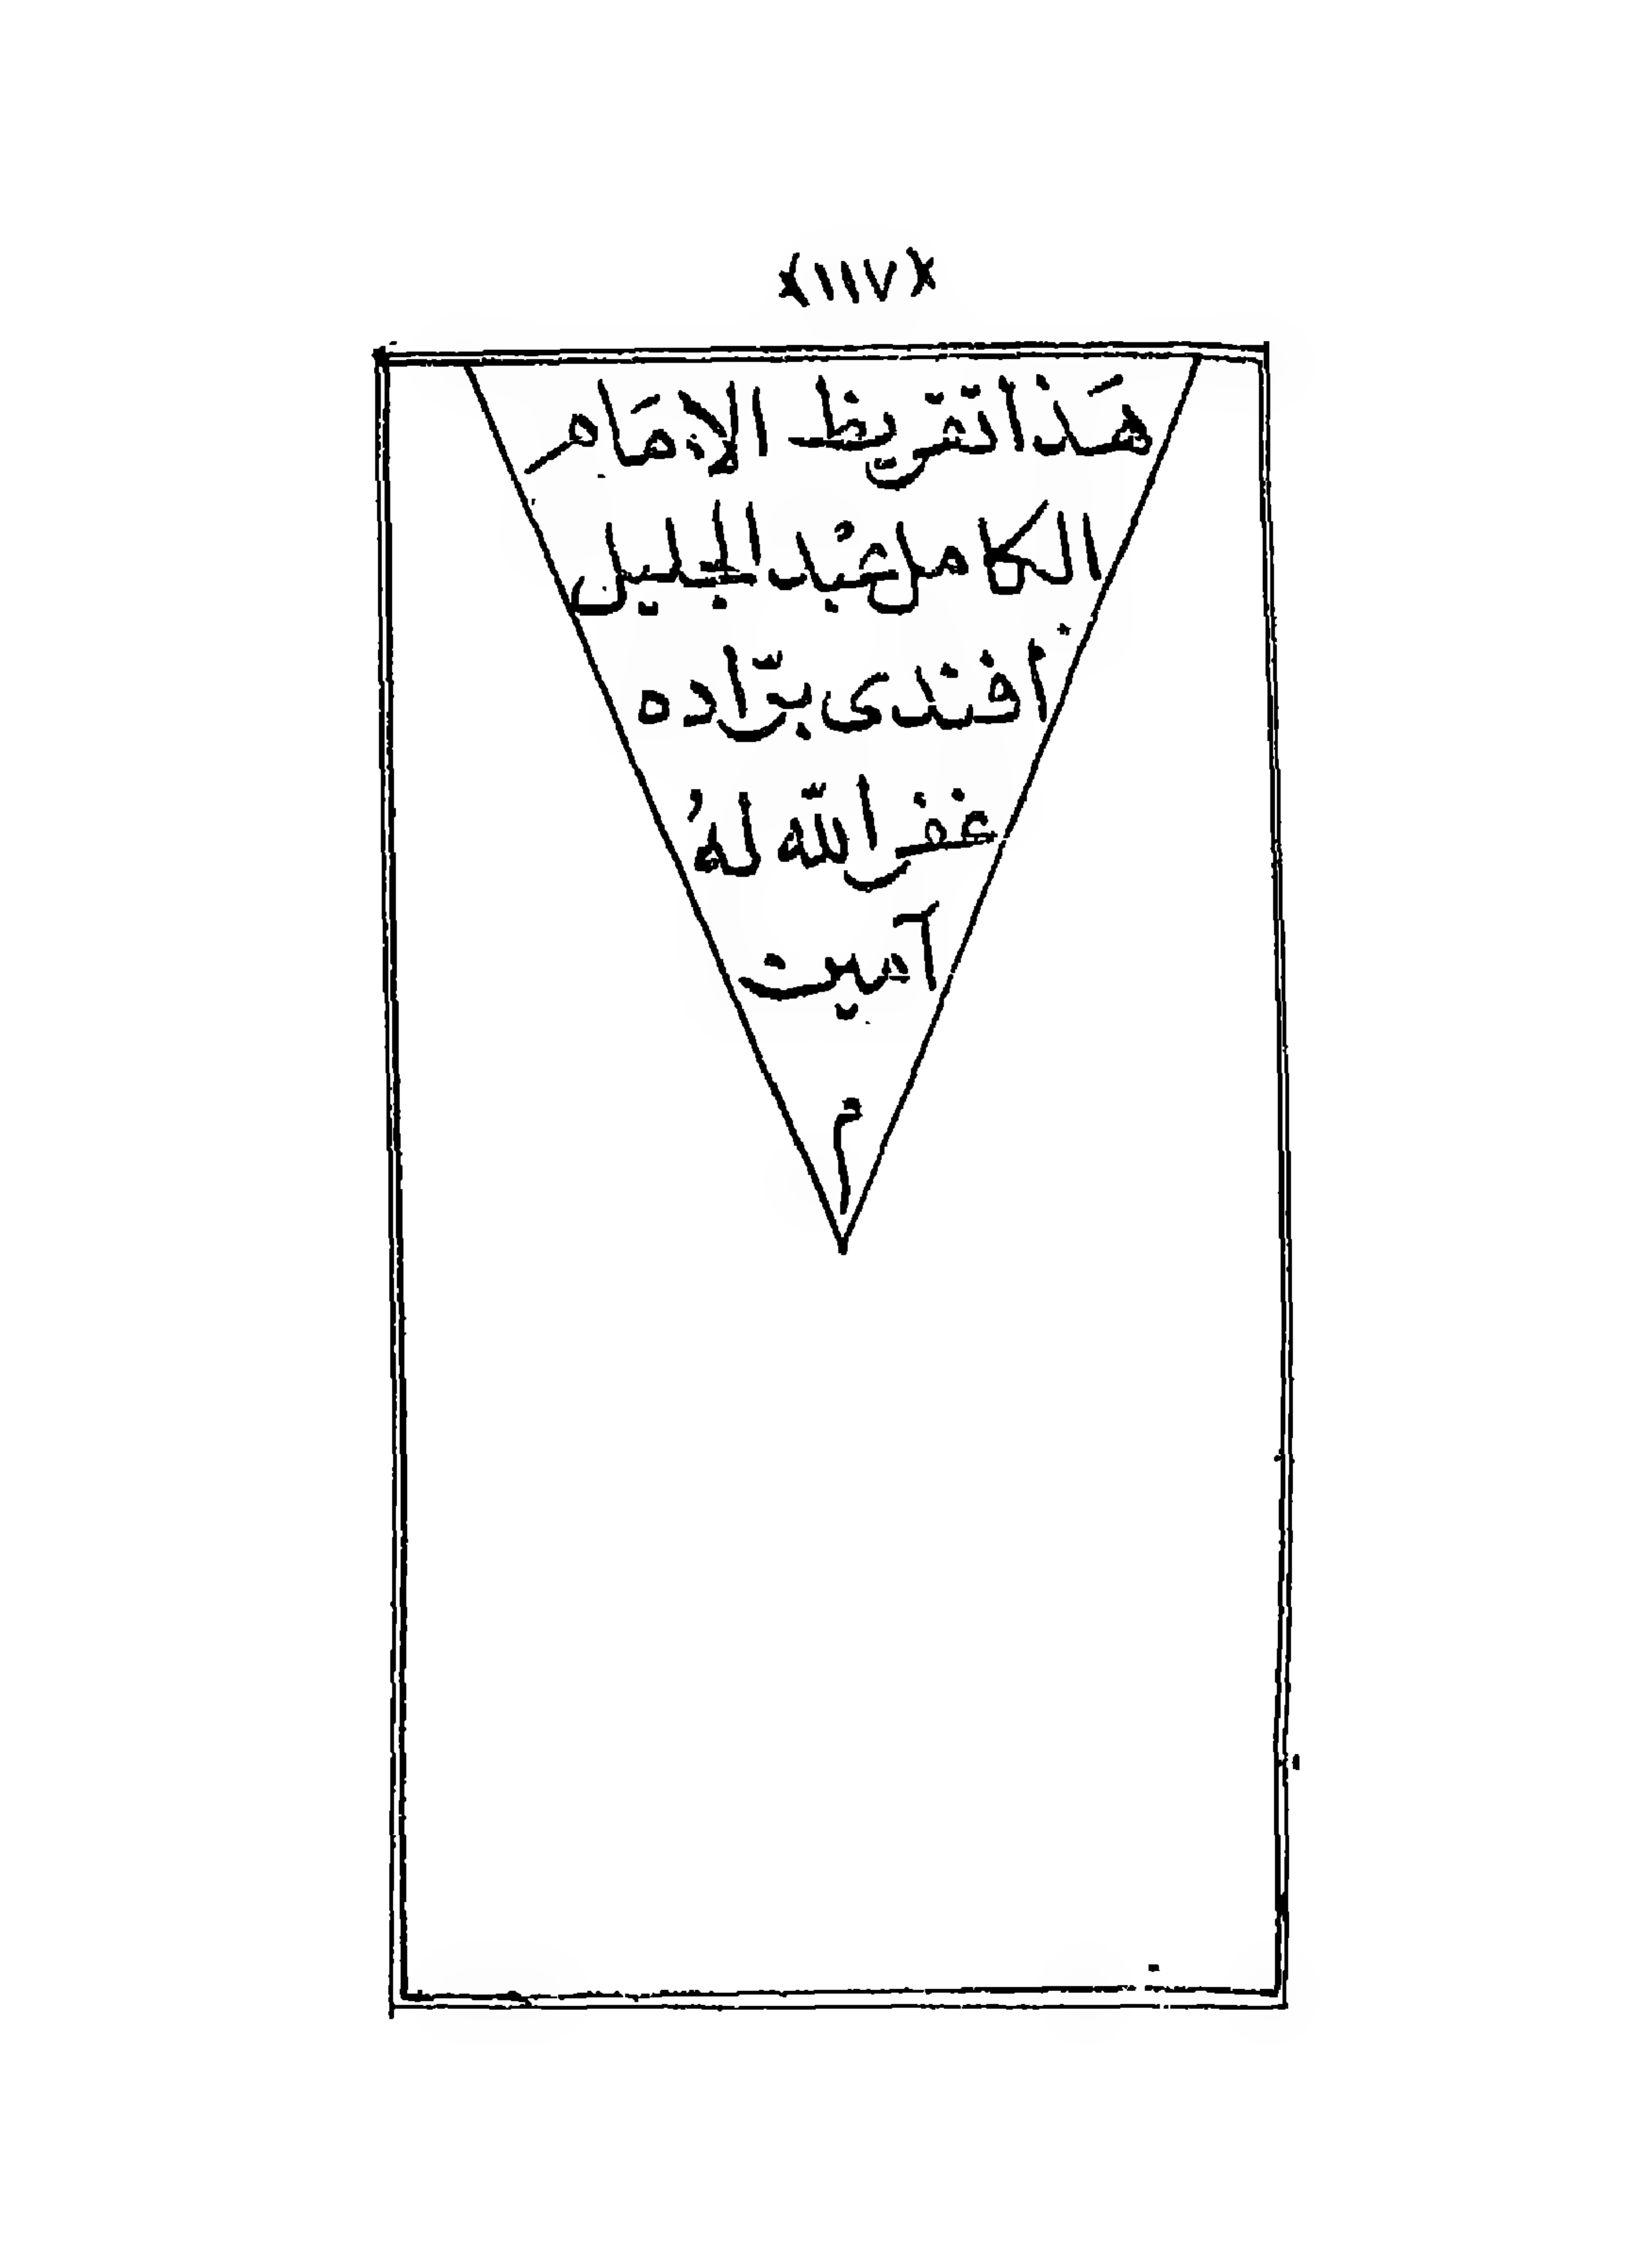 ﴿١١٧﴾
هَذا تقريظ الإمَام
الكامل عبْد الجليل
أفندى برّاده
غفر الله لهُ
آمين
م